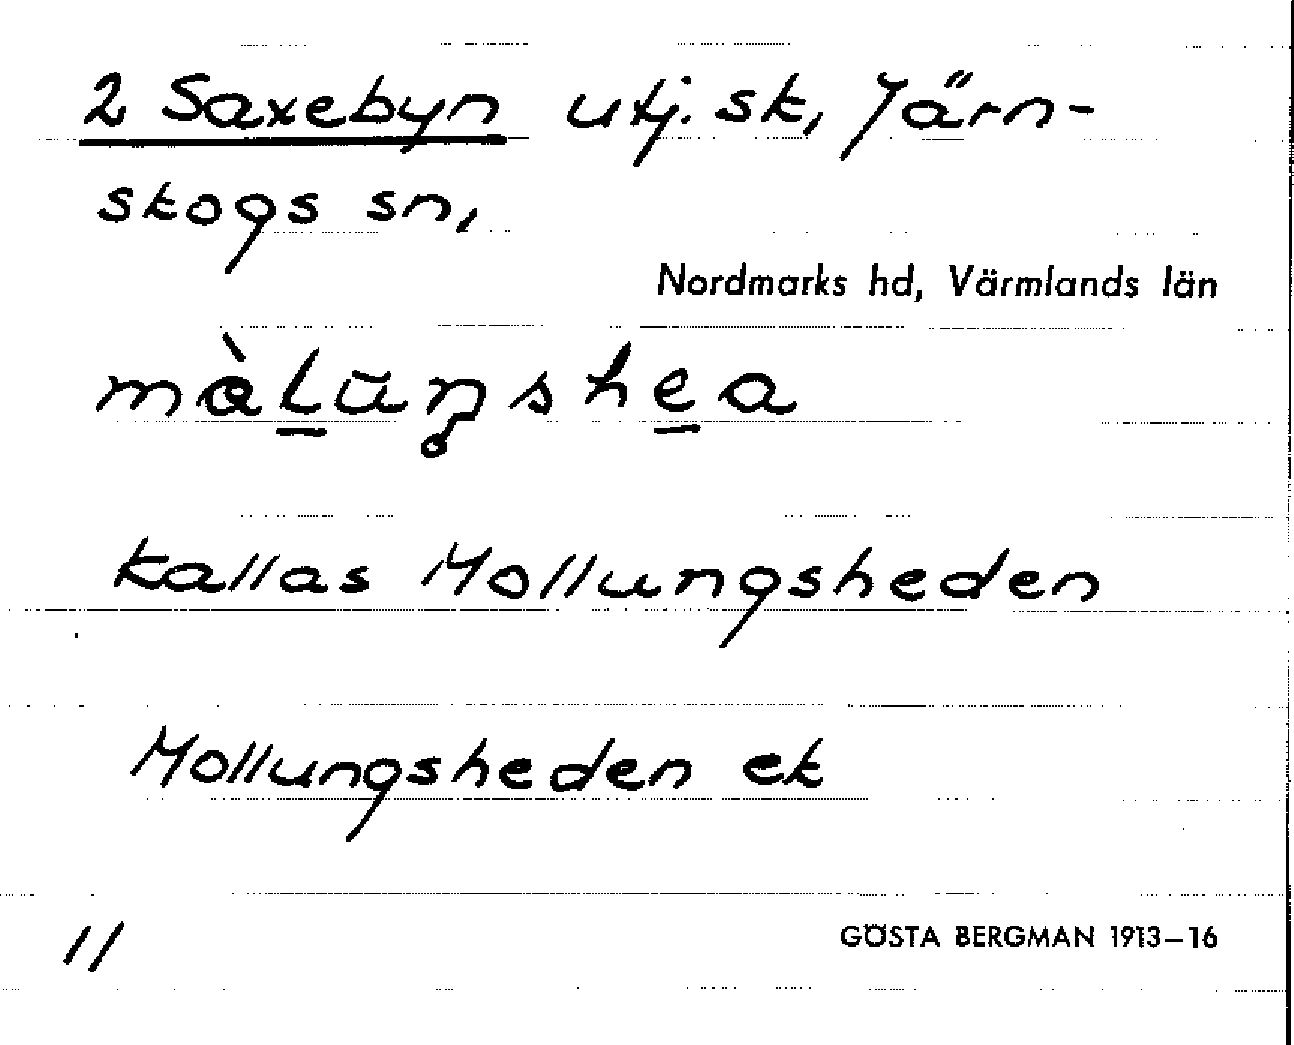 2 Saxebyn utj. sk, Järn-
skogs sn,
Nordmarks hd, Värmlands län
kallas Mollungsheden
Mollungsheden ek
11
GÖSTA BERGMAN 1913–16